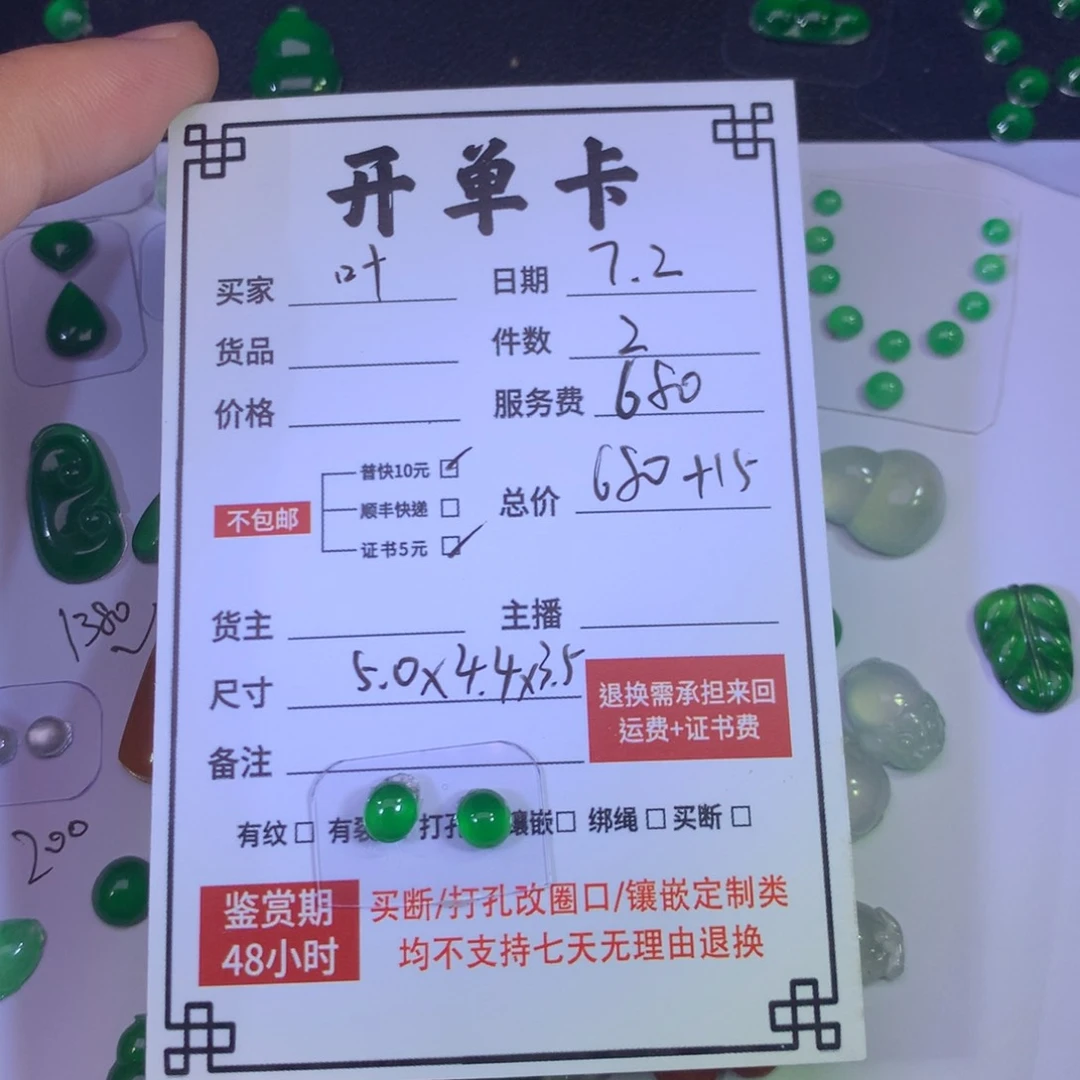 开单卡
买家 叶 日期 7.2
货品 件数 2
价格 服务费 680
普快10元 ☑
不包邮 顺丰快递 □ 总价 680+15
证书5元 ☑
货主 主播
尺寸 5.0x4.4x3.5
退换需承担来回
运费+证书费
备注
有纹 □ 有裂 打孔 镶嵌 □ 绑绳 □ 买断 □
鉴赏期
48小时
买断/打孔改圈口/镶嵌定制类
均不支持七天无理由退换
1380
200